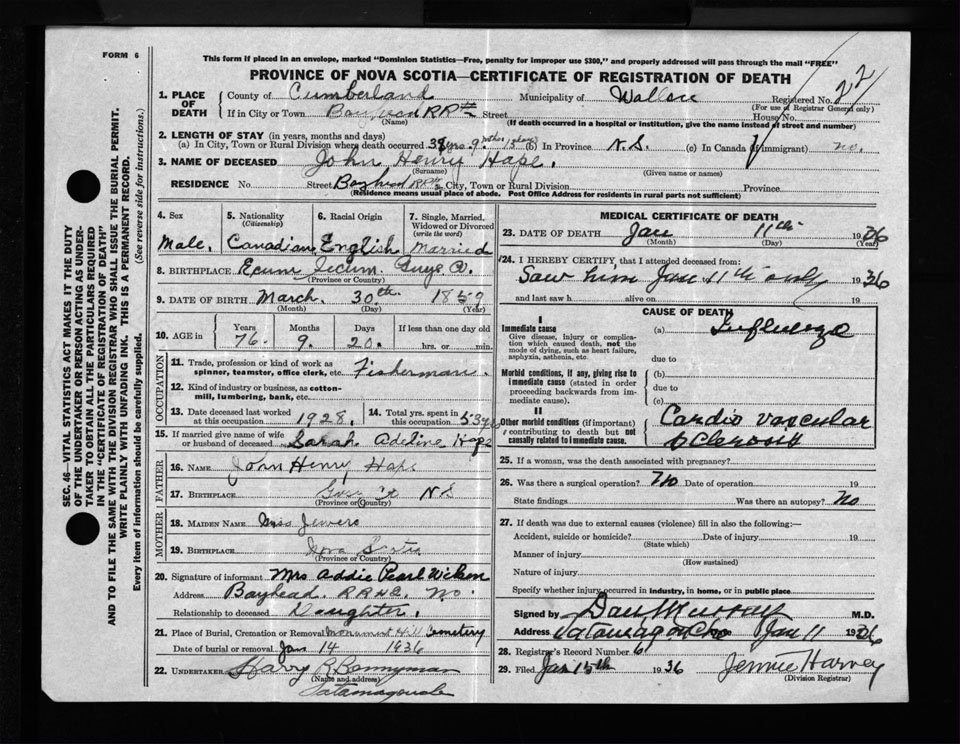 FORM 6
This form if placed in an envelope, marked "Dominion Statistics—Free, penalty for improper use $300," and properly addressed will pass through the mail "FREE"
PROVINCE OF NOVA SCOTIA—CERTIFICATE OF REGISTRATION OF DEATH
SEC. 46—VITAL STATISTICS ACT MAKES IT THE DUTY
OF THE UNDERTAKER OR PERSON ACTING AS UNDER-
TAKER TO OBTAIN ALL THE PARTICULARS REQUIRED
IN THE "CERTIFICATE OF REGISTRATION OF DEATH"
AND TO FILE THE SAME WITH THE DIVISION REGISTRAR WHO SHALL ISSUE THE BURIAL PERMIT.
WRITE PLAINLY WITH UNFADING INK. THIS IS A PERMANENT RECORD.
Every item of information should be carefully supplied. (See reverse side for instructions.)
1. PLACE OF DEATH
County of Cumberland Municipality of Wallace Registered No. 22
(For use of Registrar General only)
If in City or Town RR# Street House No.
(Name) (If death occurred in a hospital or institution, give the name instead of street and number)
2. LENGTH OF STAY (in years, months and days)
(a) In City, Town or Rural Division where death occurred yrs. 9 (b) In Province N.S. (c) In Canada (if immigrant) no.
3. NAME OF DECEASED John Henry Hape.
(Surname) (Given name or names)
RESIDENCE No. Street Bayhead City, Town or Rural Division Province
(Residence means usual place of abode. Post Office Address for residents in rural parts not sufficient)
4. Sex Male.
5. Nationality (Citizenship) Canadian
6. Racial Origin English
7. Single, Married, Widowed or Divorced (write the word) Married
8. BIRTHPLACE Ecum Secum Guys
(Province or Country)
9. DATE OF BIRTH March. 30th 1859
(Month) (Day) (Year)
10. AGE in Years 76. Months 9. Days 20. If less than one day old hrs. or min.
OCCUPATION
11. Trade, profession or kind of work as spinner, teamster, office clerk, etc. Fisherman.
12. Kind of industry or business, as cotton-mill, lumbering, bank, etc.
13. Date deceased last worked at this occupation 1928.
14. Total yrs. spent in this occupation 53 yrs
15. If married give name of wife or husband of deceased Sarah Adeline Hape
FATHER
16. NAME John Henry Hape
17. BIRTHPLACE Guys Co N S
(Province or Country)
MOTHER
18. MAIDEN NAME Miss Jewers
19. BIRTHPLACE Nova Scotia
(Province or Country)
20. Signature of informant Mrs Addie Pearl Wilson
Address Bayhead.
Relationship to deceased Daughter.
21. Place of Burial, Cremation or Removal Monument Hill Cemetery
Date of burial or removal Jan 14 1936
22. UNDERTAKER Harry R Bonnyman
(Name and address)
Tatamagouche
MEDICAL CERTIFICATE OF DEATH
23. DATE OF DEATH Jan 11th 1936
(Month) (Day) (Year)
24. I HEREBY CERTIFY, that I attended deceased from:
Saw him Jan 11th only 1936
and last saw h alive on 19
CAUSE OF DEATH
I
Immediate cause
Give disease, injury or complication which caused death, not the mode of dying, such as heart failure, asphyxia, asthenia, etc.
(a) Influenza
due to
Morbid conditions, if any, giving rise to immediate cause (stated in order proceeding backwards from immediate cause).
(b)
due to
(c)
II
Other morbid conditions (if important) contributing to death but not causally related to immediate cause.
Cardio vascular
sclerosis
25. If a woman, was the death associated with pregnancy?
26. Was there a surgical operation? No Date of operation 19
State findings Was there an autopsy? No
27. If death was due to external causes (violence) fill in also the following:—
Accident, suicide or homicide? Date of injury 19
(State which)
Manner of injury
(How sustained)
Nature of injury
Specify whether injury occurred in industry, in home, or in public place
Signed by Dan Murray M.D.
Address Tatamagouche Jan 11 1936
28. Registrar's Record Number 6
29. Filed Jan 15th 1936 Jennie Harvey
(Division Registrar)